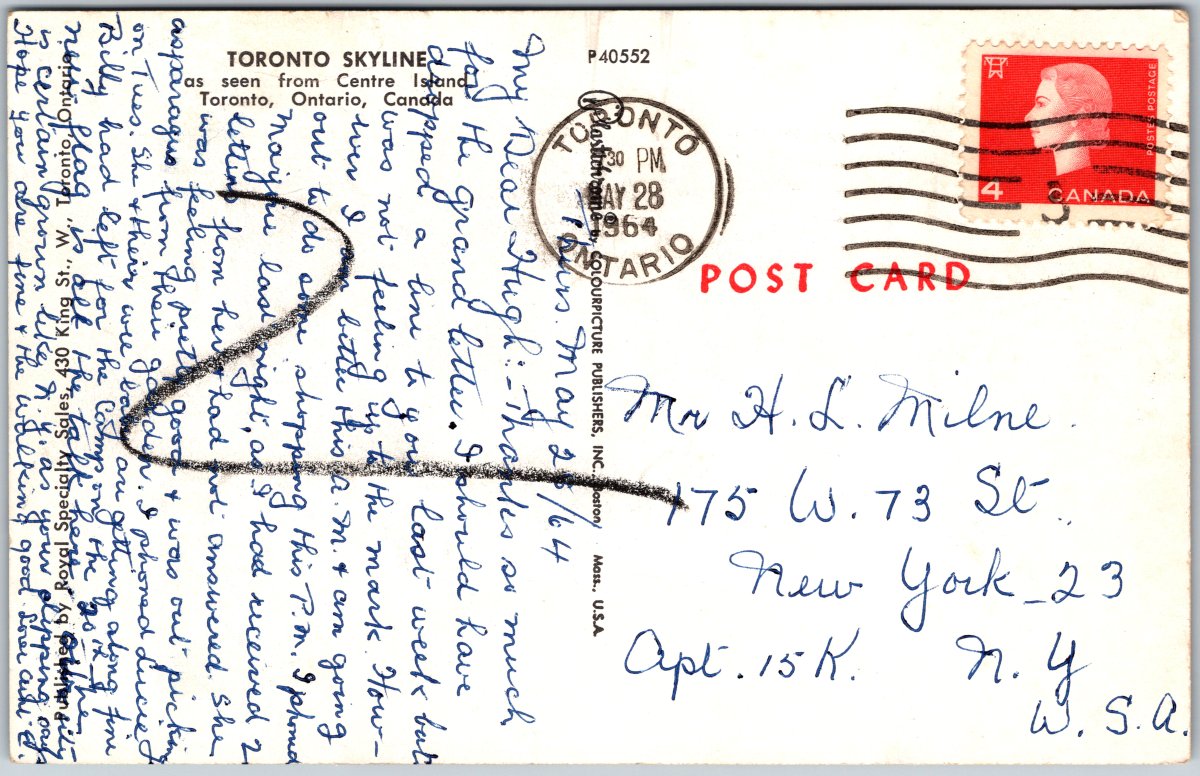 TORONTO SKYLINE
as seen from Centre Island
Toronto, Ontario, Canada
P40552
Plastichrome by COLOURPICTURE PUBLISHERS, INC., Boston Mass., U.S.A.
Published by Royal Specialty Sales, 430 King St., W., Toronto, Ontario
TORONTO
30 PM
MAY 28
1964
ONTARIO
POSTES POSTAGE
4
CANADA
5
POST CARD
Mr H. L. Milne.
175 W. 73 St.
New York_23
Apt. 15K. N. Y
U. S. A.
Thurs. May 28/64
My Dear Hugh:- Thanks so much
for the grand letter. I should have
dropped a line to you last week but
was not feeling up to the mark. How-
ever I am better this a.m. & am going
out to do some shopping this P.M. I phoned
Marjorie last night, as I had received 2
letters from her & had not answered. She
was feeling pretty good & was out picking
asparagus from their garden. I phoned Lucie
on Tues. She & theirs were getting along fine
Billy had left for the Camp on the
new flag is all the talk here. City
is certain grown like N.Y. as your clipping says
Hope you are fine & the walking good. Love